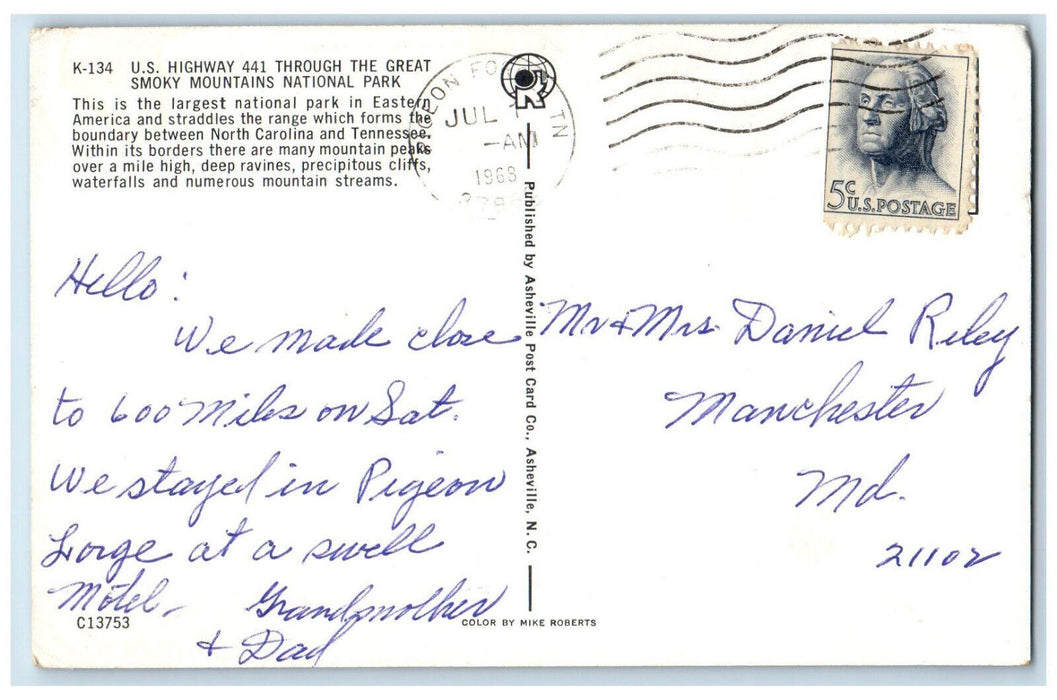 K-134 U.S. HIGHWAY 441 THROUGH THE GREAT
SMOKY MOUNTAINS NATIONAL PARK
This is the largest national park in Eastern
America and straddles the range which forms the
boundary between North Carolina and Tennessee.
Within its borders there are many mountain peaks
over a mile high, deep ravines, precipitous cliffs,
waterfalls and numerous mountain streams.
Hello:
We made close
to 600 Miles on Sat.
We stayed in Pigeon
Forge at a swell
Motel -
Grandmother
+ Dad
C13753
PIGEON FO TN
JUL
-AM
1968
K
Published by Asheville Post Card Co., Asheville, N. C.
COLOR BY MIKE ROBERTS
5c
U.S. POSTAGE
Mr + Mrs. Daniel Riley
Manchester
Md.
21102